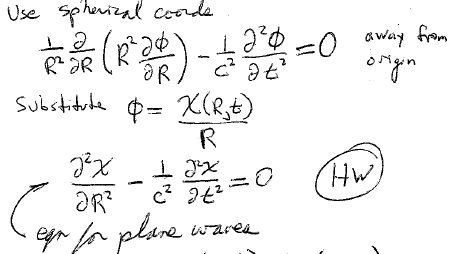 Use spherical coords
1/R² ∂/∂R (R² ∂Φ/∂R) - 1/c² ∂²Φ/∂t² = 0 away from origin
Substitute Φ = χ(R,t)/R
∂²χ/∂R² - 1/c² ∂²χ/∂t² = 0 HW
eqn for plane waves